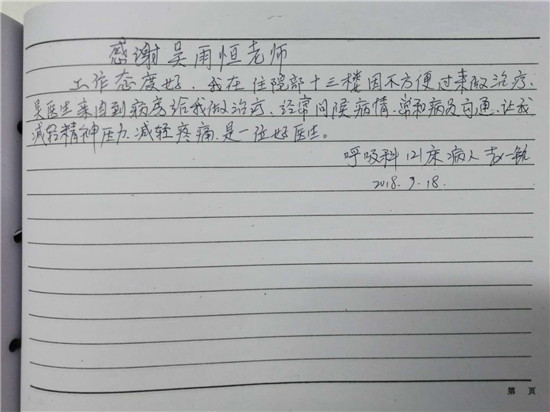 感谢吴雨恒老师
工作态度好、我在住院部十三楼因不方便过来做治疗、
吴医生亲自到病房给我做治疗、经常问候病情、常和病员沟通、让我
减轻精神压力、减轻疼痛、是一位好医生。
呼吸科121床病人
2018.9.18.
第 页